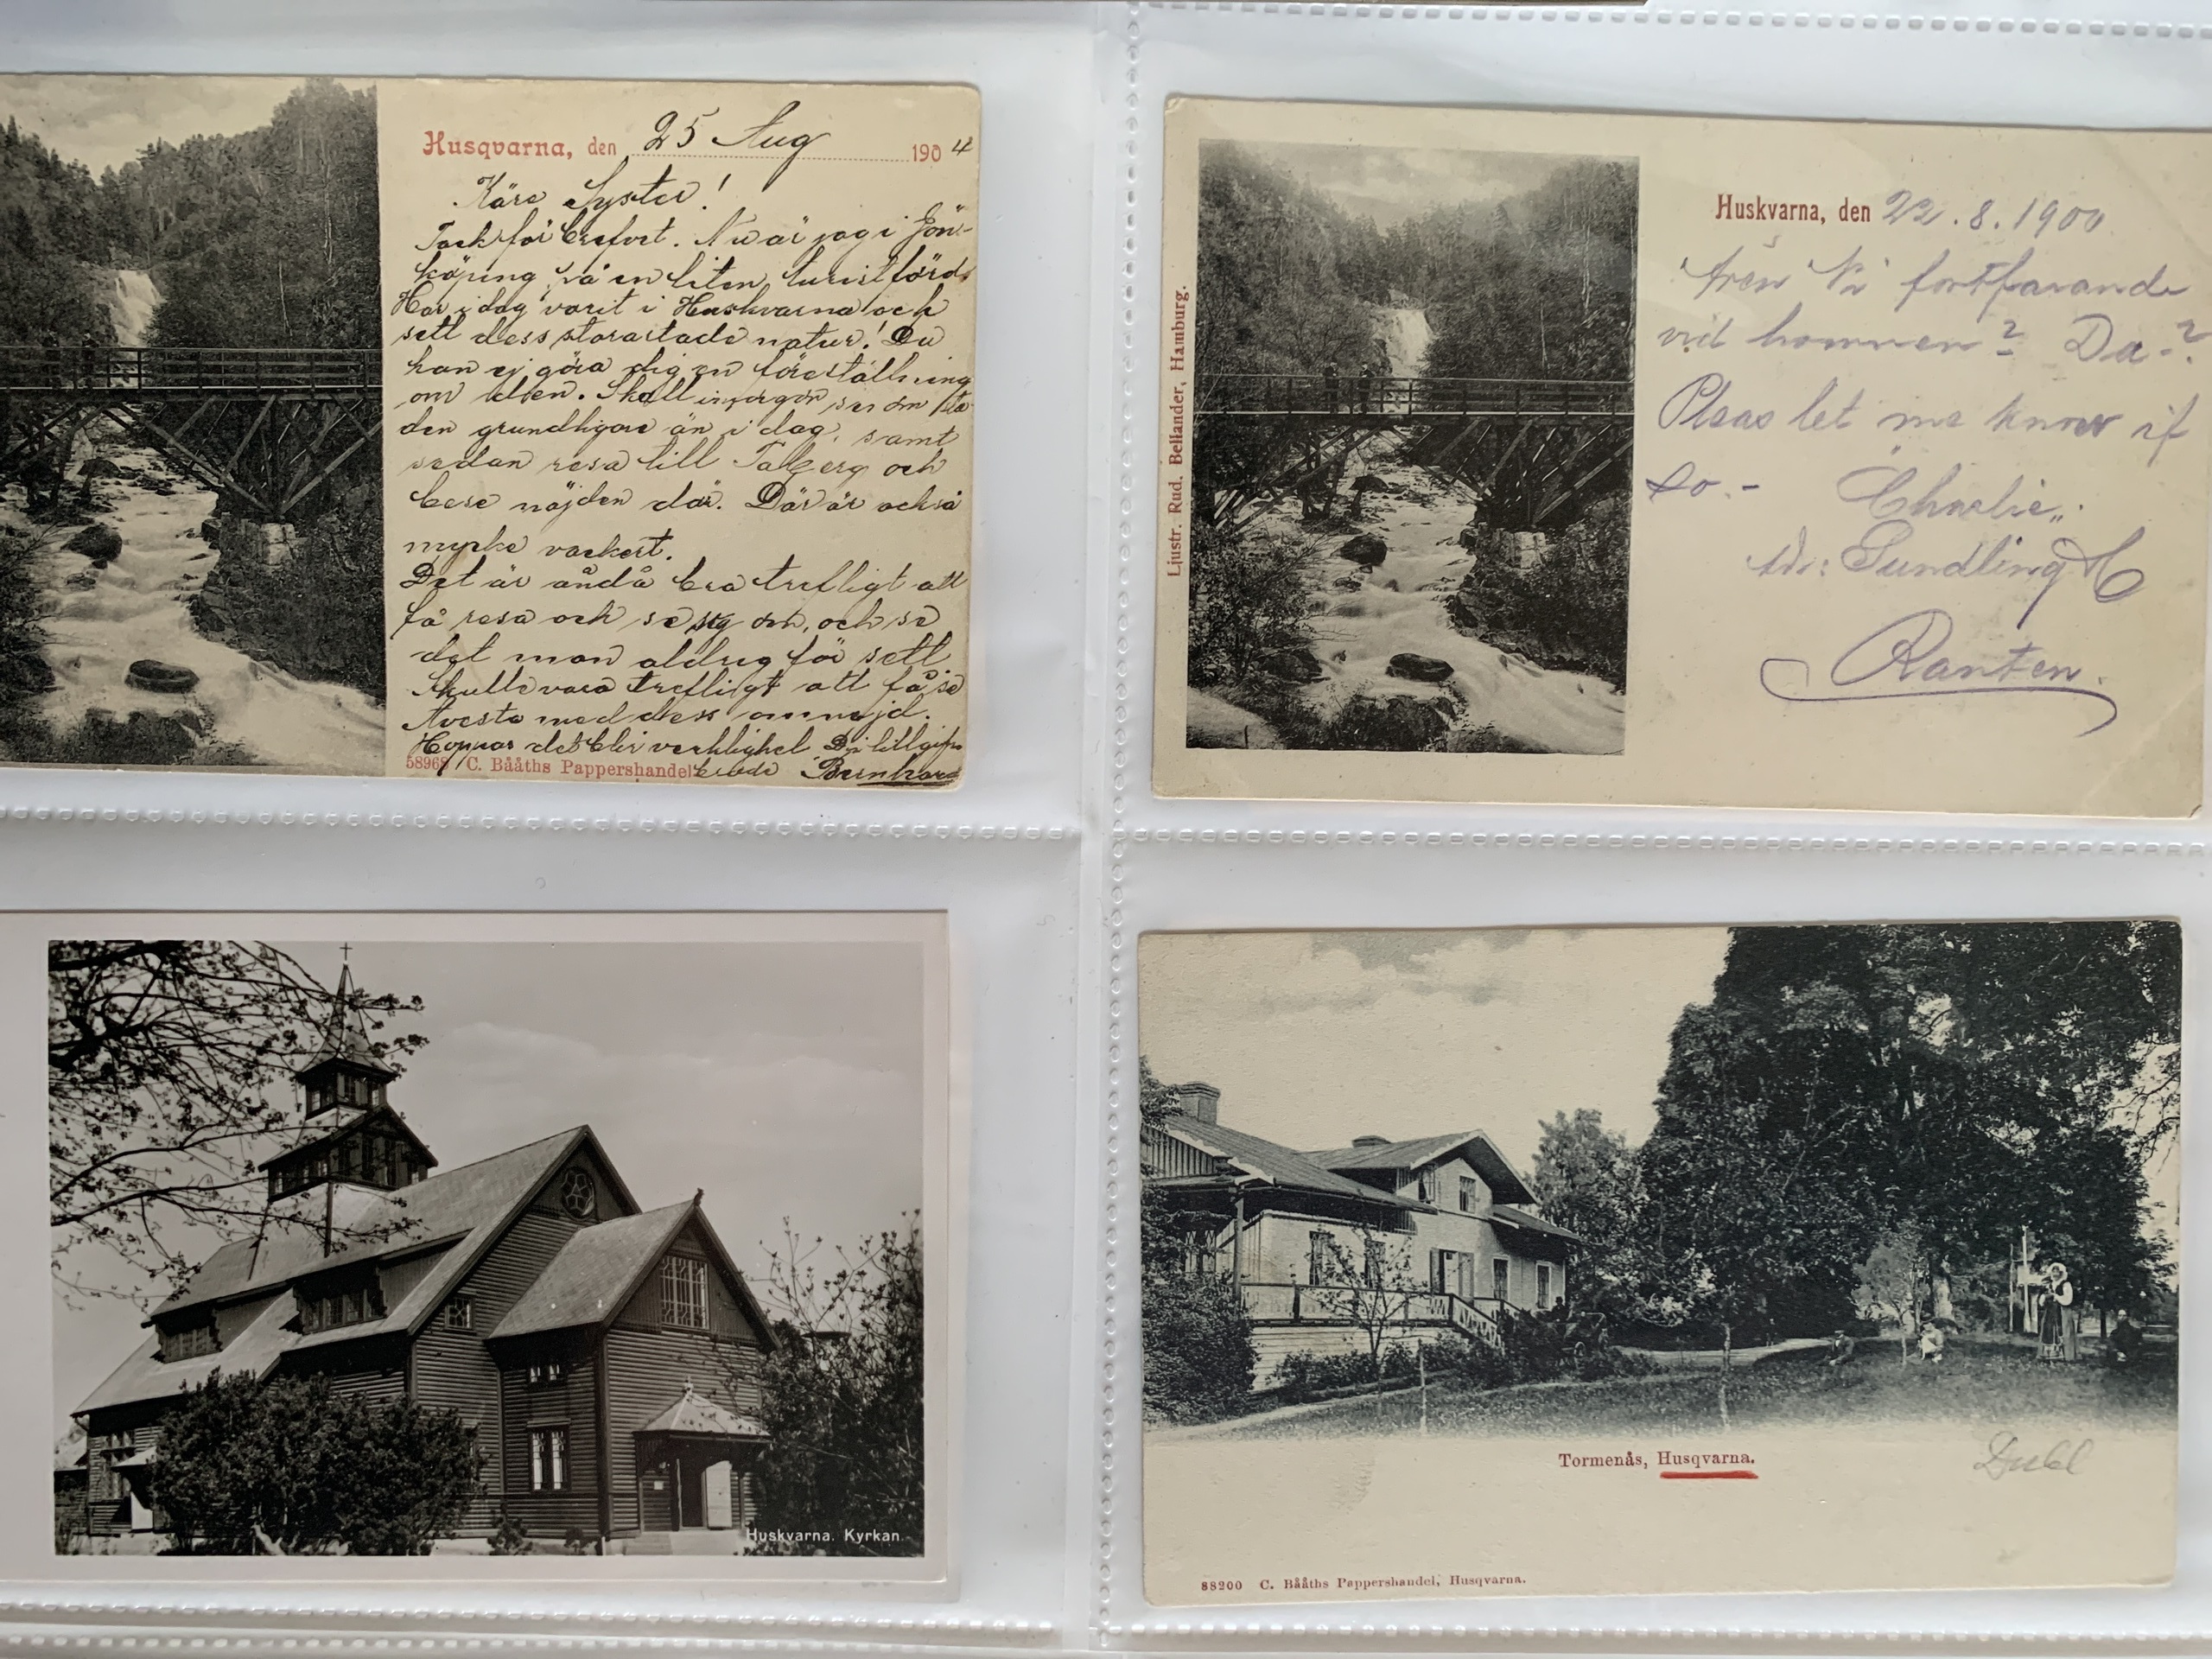 Husqvarna, den 25 Aug 1904
Kära Syster!
Tack för brefvet. Nu är jag i Jön-
köping på en liten turistfärd.
Har i dag varit i Huskvarna och
sett dess storartade natur! Du
kan ej göra dig en föreställning
om den. Skall
den grundligare än i dag, samt
sedan resa till Taberg och
bese nöjden där. Där är också
mycke vackert.
Det är ändå bra trefligt att
få resa och se sig om, och se
det man aldrig för sett
Skulle vara trefligt att få se
Avesta med dess omnejd.
Hoppas det blir verklighet Din tillgifn
58968 C. Bååths Pappershandel Bernhard
Huskvarna, den 22.8.1900.
Ären Ni fortfarande
vid hamnen? Da-?
Pleas let me know if
so.- Charlie
Sundling
Ranten.
Ljustr. Rud. Bellander, Hamburg.
Huskvarna. Kyrkan.
Tormenås, Husqvarna.
Dubl
88200 C. Bååths Pappershandel, Husqvarna.